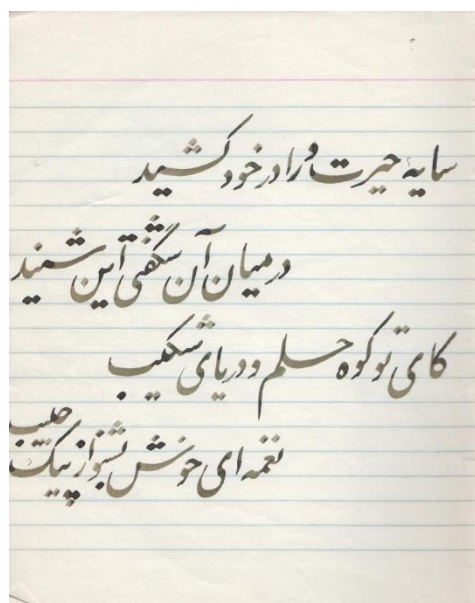 سایهٔ حیرت ورا در خود کشید
در میان آن شگفتی این شنید
کای تو کوه حلم و دریای شکیب
نغمه‌ای خوش بشنو از پیک حبیب